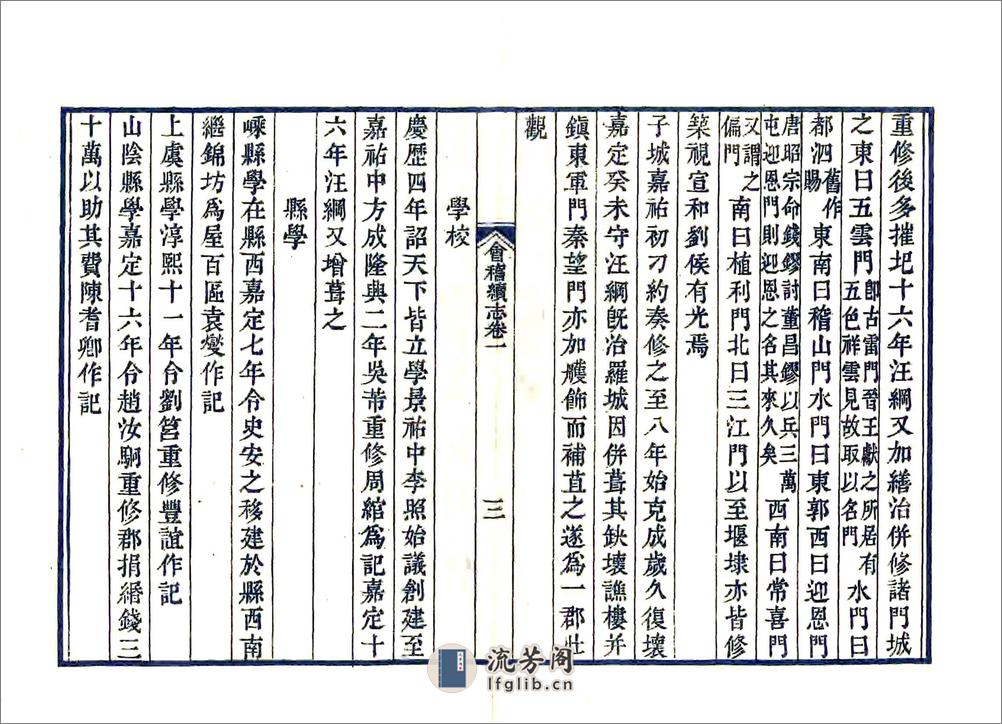 重修後多摧圯十六年汪綱又加繕治併修諸門城
之東曰五雲門卽古雷門晉王獻之所居有五色祥雲見故取以名門水門曰
都泗舊作賜東南曰稽山門水門曰東郭西曰迎恩門
唐昭宗命錢鏐討董昌鏐以兵三萬屯迎恩門則迎恩之名其來久矣西南曰常喜門
又謂之偏門南曰植利門北曰三江門以至堰埭亦皆修
築視宣和劉侯有光焉
子城嘉祐初刁約奏修之至八年始克成歲久復壞
嘉定癸未守汪綱旣冶羅城因併葺其缺壞譙樓并
鎭東軍門秦望門亦加艧飾而補苴之遂為一郡壯
觀
會稽續志卷一
三
學校
慶歷四年詔天下皆立學景祐中李照始議創建至
嘉祐中方成隆興二年吳芾重修周綰為記嘉定十
六年汪綱又增葺之
縣學
嵊縣學在縣西嘉定七年令史安之移建於縣西南
繼錦坊為屋百區袁燮作記
上虞縣學淳熙十一年令劉筥重修豐誼作記
山陰縣學嘉定十六年令趙汝駉重修郡捐緡錢三
十萬以助其費陳耆卿作記
流芳阁
lfglib.cn